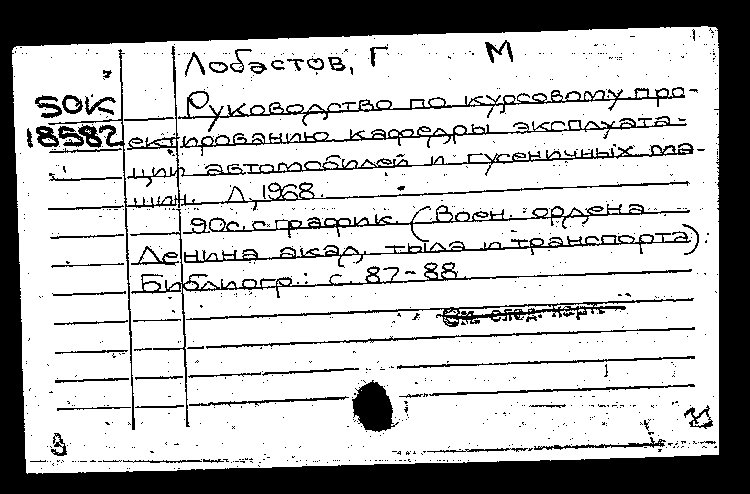 Лобастов, Г М
SOK Руководство по курсовому про-
18582 ектированию кафедры эксплуата-
ции автомобилей и гусеничных ма-
шин. Л, 1968.
90с. с график. (Воен. ордена
Ленина акад. тыла и транспорта).
Библиогр.: с. 87-88.
См. след. карт.